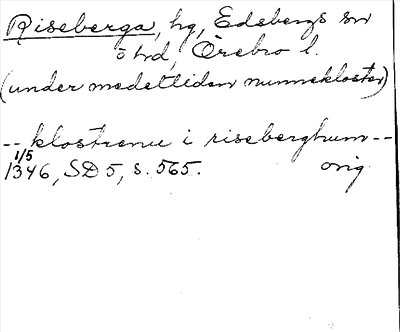 Riseberga, hg, Edsbergs sn
ö hd, Örebro l.
(under medeltiden nunnekloster)
-- klostrenu i riseberghum --
1/5
1346, SD 5, s. 565. orig.